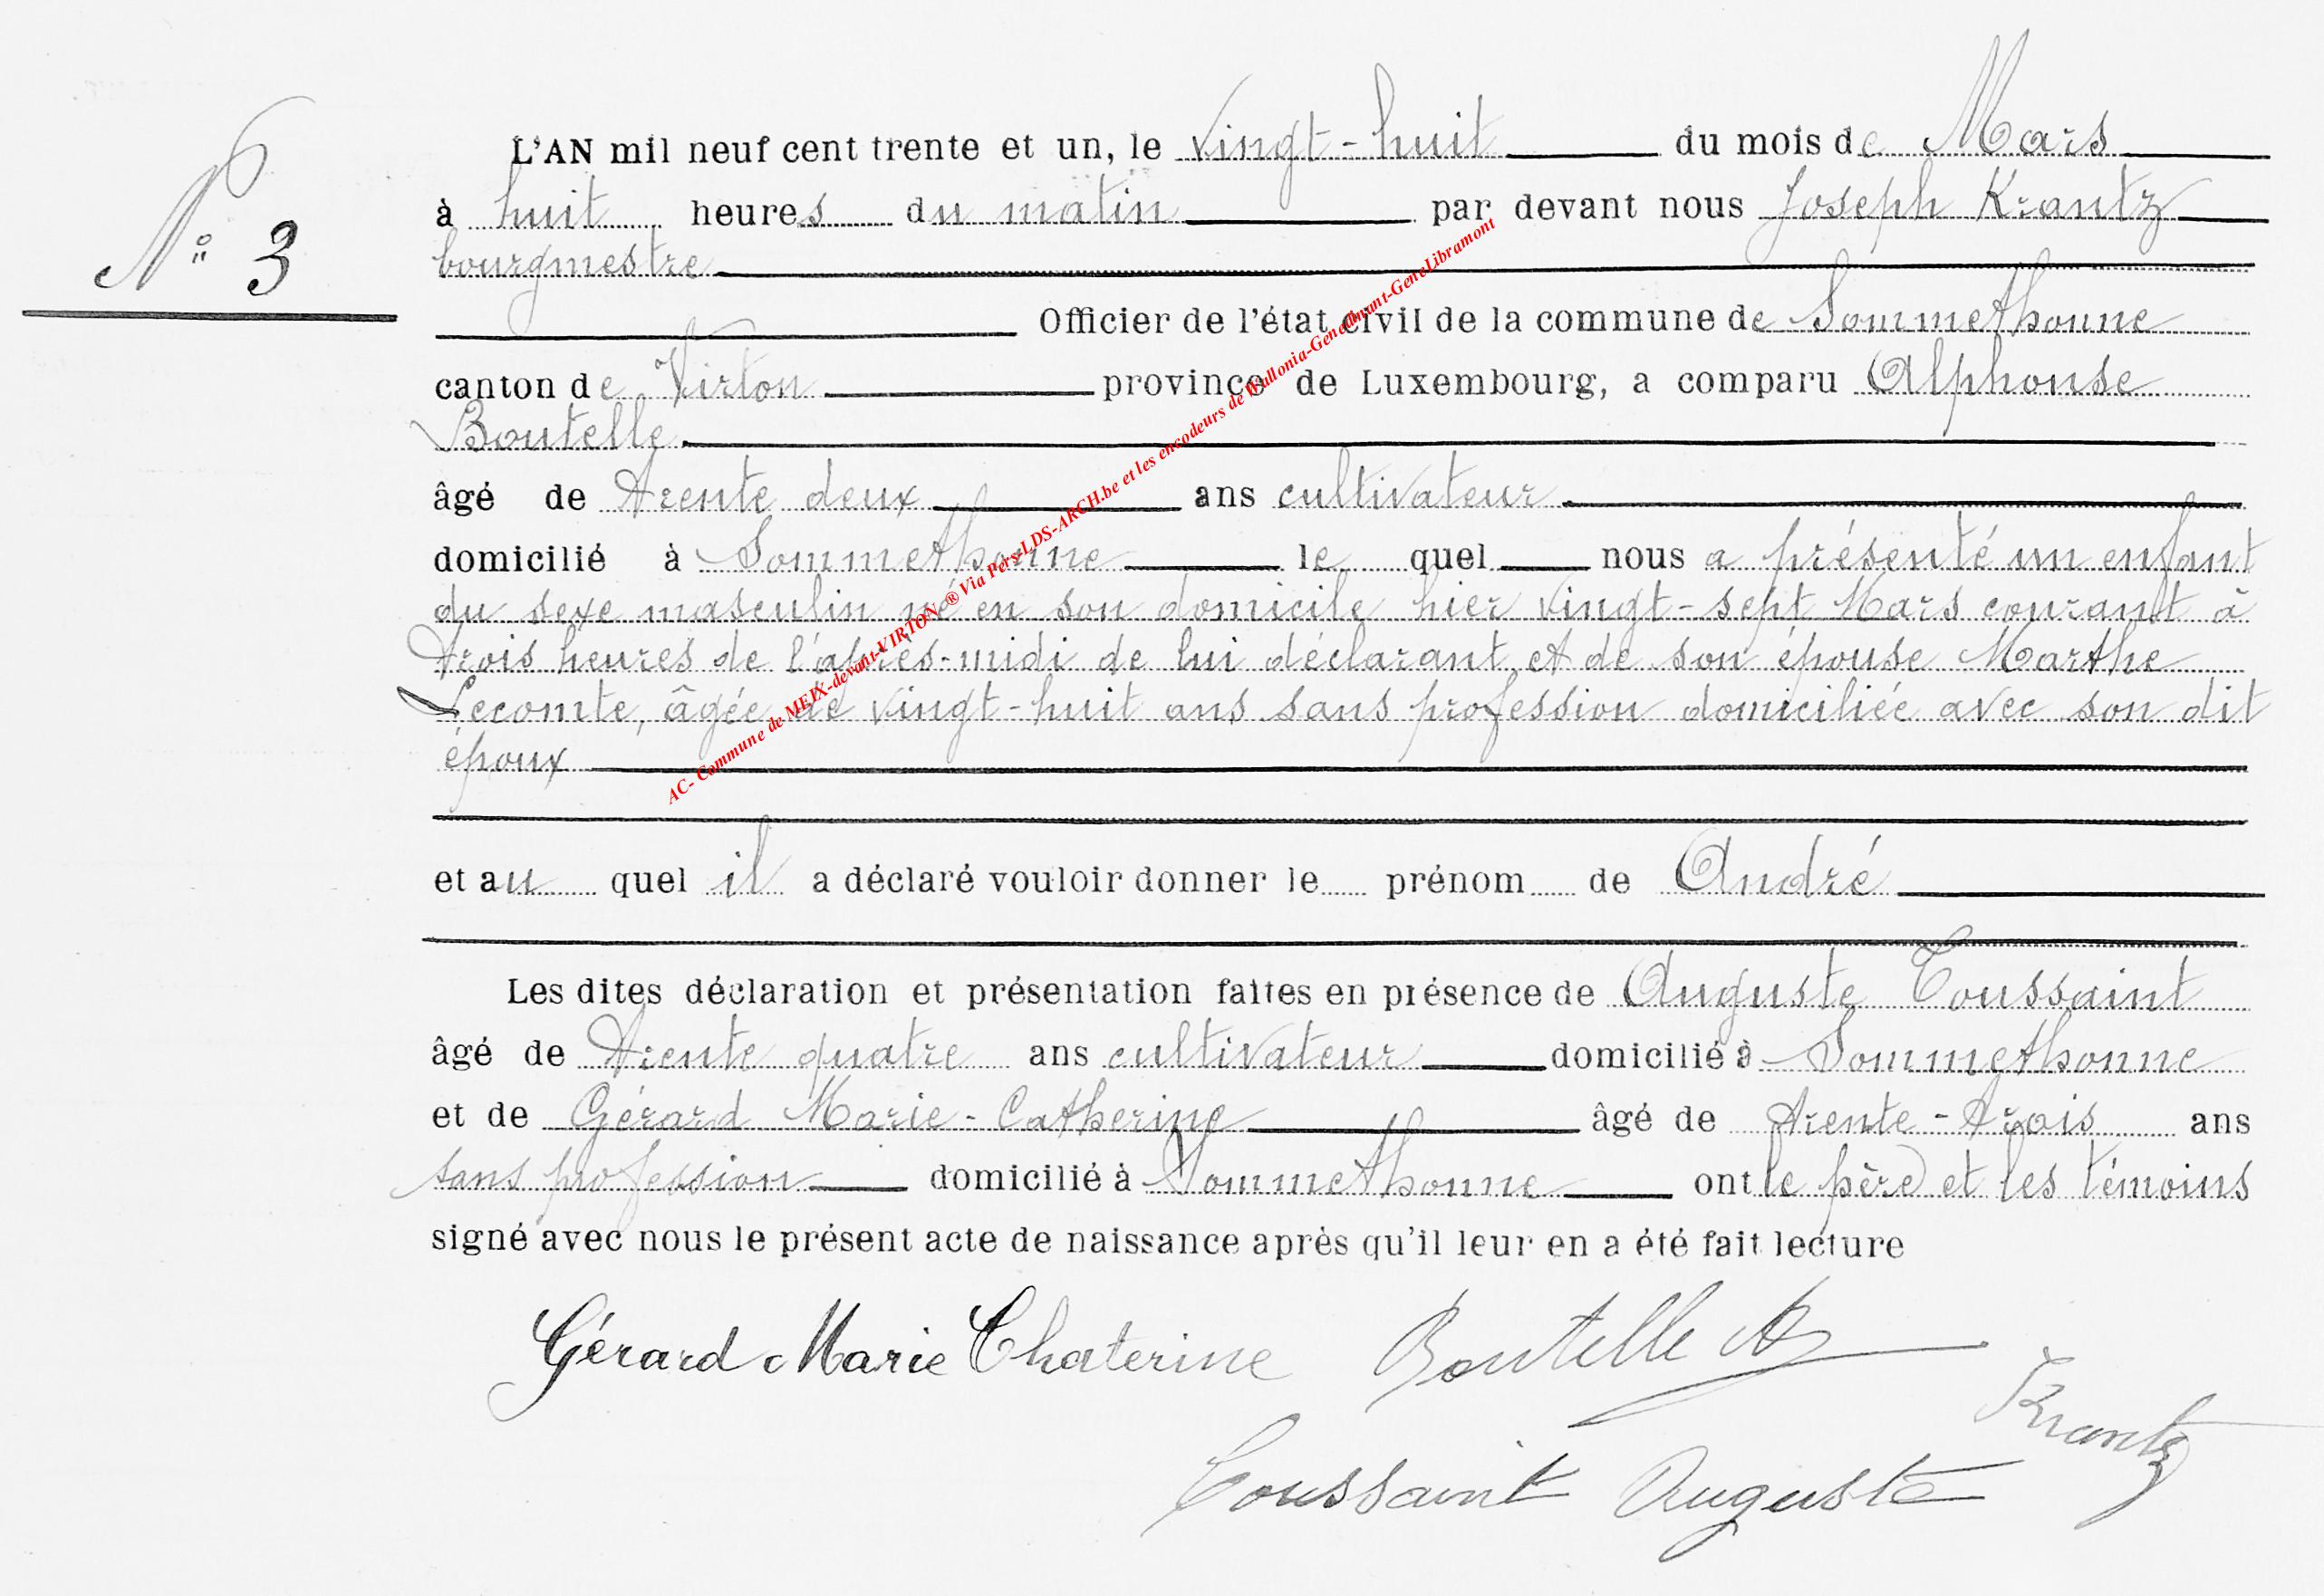 N° 3
L'AN mil neuf cent trente et un, le vingt-huit du mois de Mars
à huit heures du matin par devant nous Joseph Krantz
bourgmestre
Officier de l'état civil de la commune de Sommethonne
canton de Virton province de Luxembourg, a comparu Alphonse
Boutelle
âgé de trente deux ans cultivateur
domicilié à Sommethonne le quel nous a présenté un enfant
du sexe masculin né en son domicile hier vingt-sept Mars courant à
trois heures de l'après-midi de lui déclarant et de son épouse Marthe
Lecomte, âgée de vingt-huit ans sans profession domiciliée avec son dit
époux
et au quel il a déclaré vouloir donner le prénom de André
Les dites déclaration et présentation faites en présence de Auguste Toussaint
âgé de trente quatre ans cultivateur domicilié à Sommethonne
et de Gérard Marie-Catherine âgé de trente-trois ans
sans profession domicilié à Sommethonne ont le père et les témoins
signé avec nous le présent acte de naissance après qu'il leur en a été fait lecture
Gérard Marie Chaterine Boutelle A
Krantz
Toussaint Auguste
AC- Commune de MEIX-devant-VIRTON ® Via Pers-LDS-ARCH.be et les encodeurs de Wallonia-Genedinant-GeneLibramont